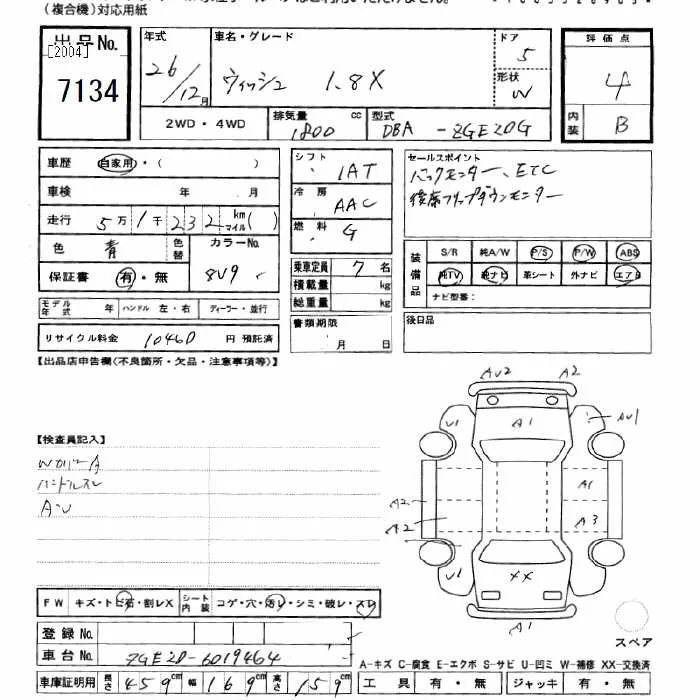 (複合機)対応用紙
出品No.
[2004]
7134
年式
26/12月
車名・グレード
ウィッシュ 1.8X
ドア
5
形状
W
評価点
4
内装
B
2WD・4WD
排気量
1800 cc
型式
DBA -ZGE20G
車歴 自家用・( )
車検 年 月
走行 5万1千232 km マイル( )
色 青 色替
カラーNo.
8V9
保証書 有・無
モデル年式 年 ハンドル 左・右 ディーラー・並行
リサイクル料金 10460 円 預託済
シフト
IAT
冷房
AAC
燃料
G
乗車定員 7名
積載量 kg
総重量 kg
書類期限
月 日
セールスポイント
バックモニター、ETC
後席フリップダウンモニター
装備品
S/R 純A/W P/S P/W ABS
純TV 純ナビ 革シート 外ナビ エアB
ナビ型番:
後日品
【出品店申告欄(不良箇所・欠品・注意事項等)】
【検査員記入】
Wカバー A
ハンドルスレ
A・U
AU2 A2
U1 A1 AU1
A2 A1
A2 A3
U1 XX
A1
スペア
FW キズ・トビ石・割レX シート内装 コゲ・穴・汚レ・シミ・破レ・スレ
登録No.
車台No. ZGE20-6019464
A-キズ C-腐食 E-エクボ S-サビ U-凹ミ W-補修 XX-交換済
車庫証明用 長さ 459cm 幅 169cm 高さ 159cm
工具 有・無 ジャッキ 有・無